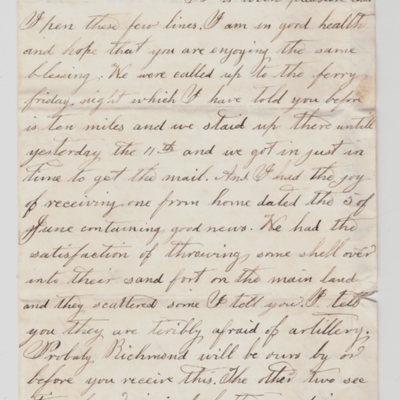 It is with pleasure that
I pen these few lines. I am in good health
and hope that you are enjoying the same
blessing. We were called up to the ferry
friday night which I have told you before
is ten miles and we staid up there untill
yesterday the 11th and we got in just in
time to get the mail. And I had the joy
of receiving one from home dated the 5 of
June containing good news. We had the
satisfaction of threwing some shell over
into their sand fort on the main land
and they scattered some I tell you. I tell
you they are teribly afraid of artillery.
Probaly Richmond will be ours by or
before you receive this. The other two sec